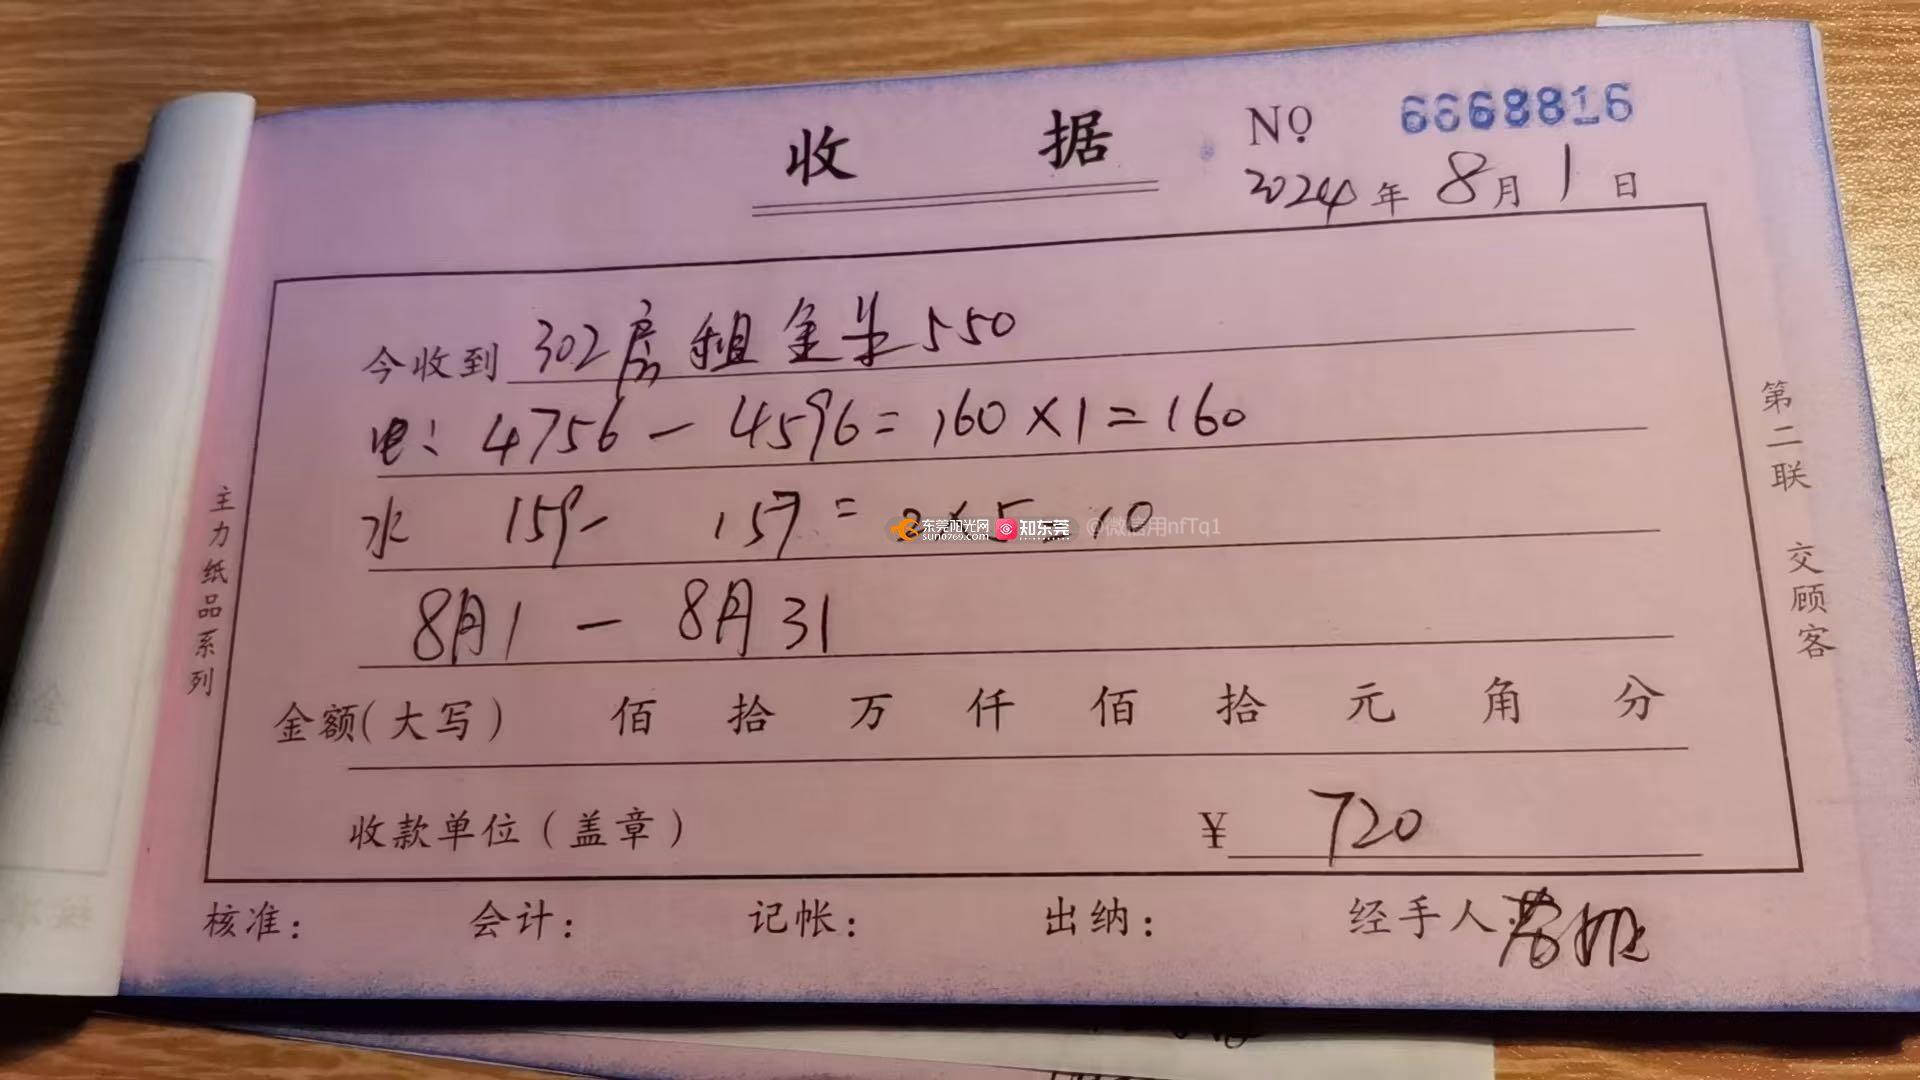 收 据
№ 6668816
2024年 8月 1日
今收到 302房 租金 550
电: 4756 - 4596 = 160 × 1 = 160
水 159 - 157 = 2 × 5 = 10
8月1 - 8月31
金额(大写) 佰 拾 万 仟 佰 拾 元 角 分
收款单位(盖章) ¥ 720
核准: 会计: 记帐: 出纳: 经手人
主力纸品系列
第二联 交顾客
东莞阳光网
sun0769.com
知东莞
@微信用nfTq1